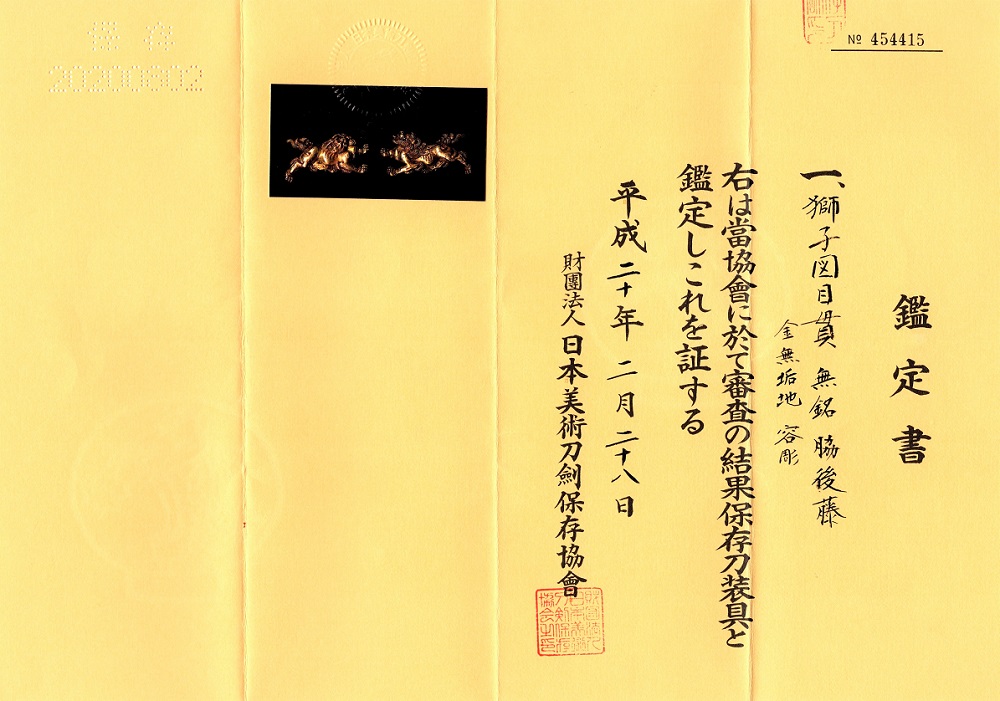 № 454415
鑑定書
一、獅子図目貫 無銘 脇後藤
金無垢地 容彫
右は當協會に於て審査の結果保存刀装具と
鑑定しこれを証する
平成二十年二月二十八日
財團法人日本美術刀劍保存協會
保存
20200802